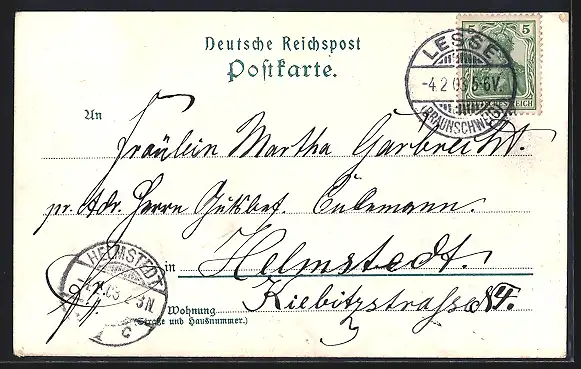 Deutsche Reichspost
Postkarte.
5 5
LESSE
-4.2.03 5-6V.
(BRAUNSCHWEIG)
REICH
An
Fräulein Martha Garbrecht.
pr. Adr. Herrn Gutsbes. Cülemann.
in Helmstedt.
HELMSTEDT
4.2.03 2-3N.
C
Wohnung Kiebitzstraße
(Straße und Hausnummer.)